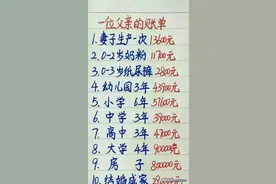 一位父亲的账单
1.妻子生产一次13600元
2.0-2岁奶粉11700元
3.0-3岁纸尿裤2800元
4.幼儿园3年43900元
5.小学6年51600元
6.中学3年39000元
7.高中3年47000元
8.大学4年90000元
9.房子800000元
10.结婚成家